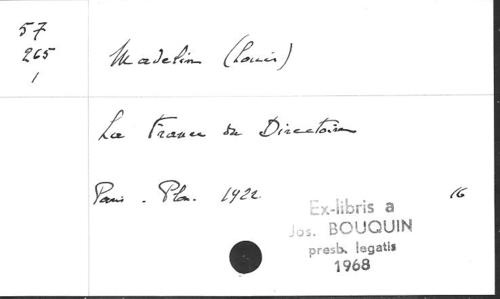 57
265
1
Madelin (Louis)
La France du Directoire
Paris. Plon. 1922. 16
Ex-libris a
Jos. BOUQUIN
presb. legatis
1968